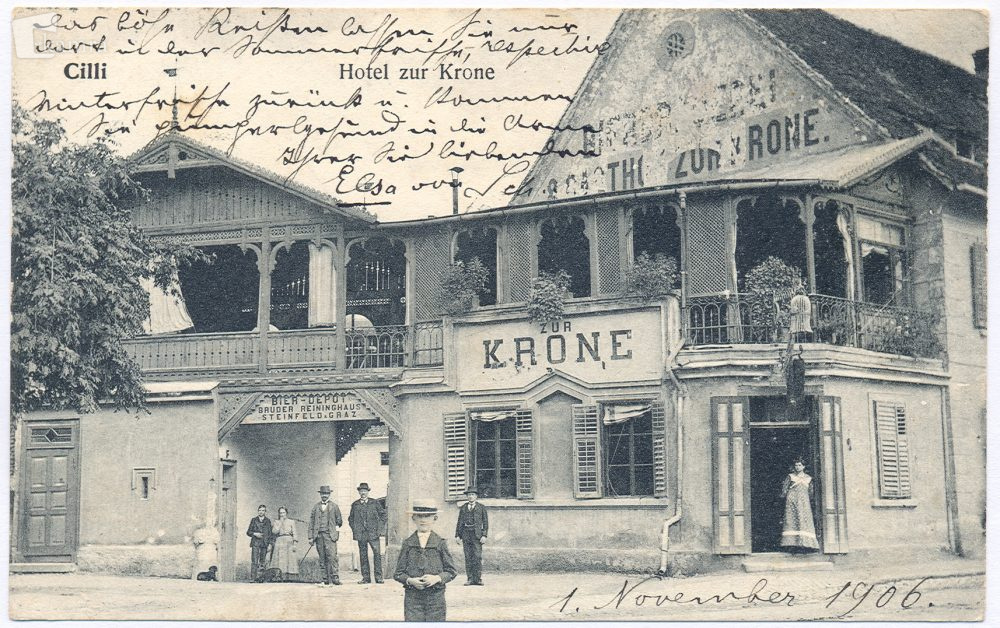 das böse Reißen lassen Sie nur
dort in der Sommerfrische, respective
Cilli
Hotel zur Krone
Winterfrische zurück u. kommen
Sie pumperlgesund in die Arme
Ihrer Sie liebenden
Elsa von
GASTH ZUR KRONE.
ZUR
KRONE
BIER-DEPOT
BRÜDER REININGHAUS
STEINFELD-GRAZ
1. November 1906.